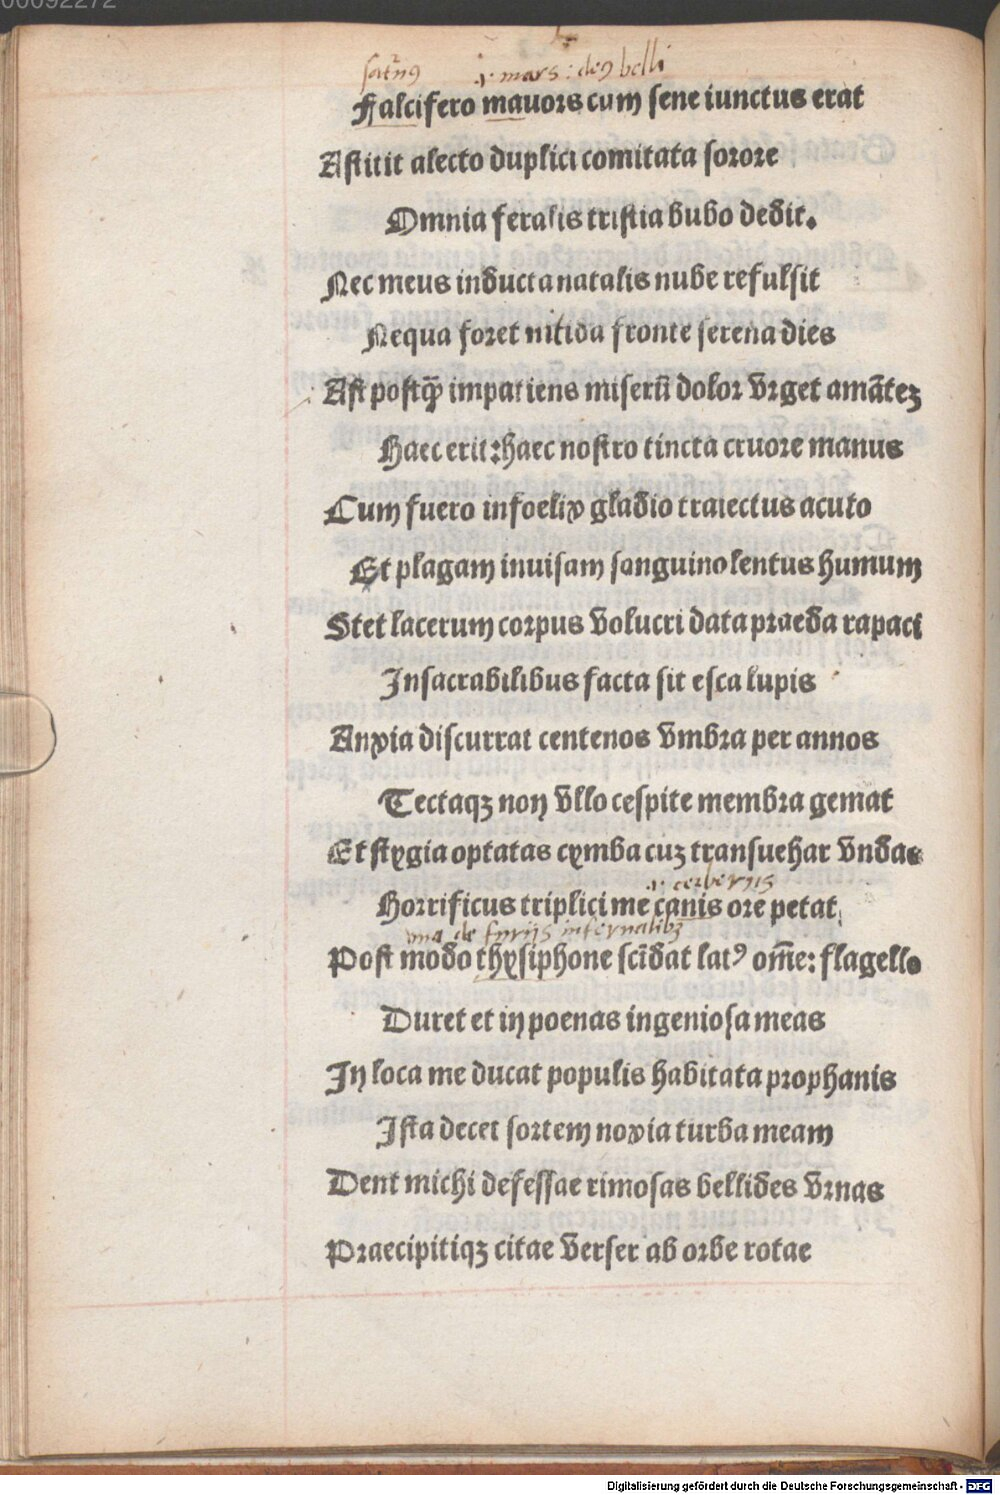 00092272
saturnus .i. mars: deus belli
Falcifero mauors cum sene iunctus erat
Astitit alecto duplici comitata sorore
Omnia feralis tristia bubo dedit.
Nec meus inducta natalis nube refulsit
Nequa foret nitida fronte serena dies
Ast postq̄ impatiens miserū dolor vrget amātez
Haec erit: haec nostro tincta cruore manus
Cum fuero infoelix gladio traiectus acuto
Et plagam inuisam sanguinolentus humum
Stet lacerum corpus volucri data praeda rapaci
Insacrabilibus facta sit esca lupis
Anxia discurrat centenos vmbra per annos
Tectaqꝫ non vllo cespite membra gemat
Et stygia optatas cymba cuz transuehar vndas
.i. cerberus
Horrificus triplici me canis ore petat
vna de furijs infernalibꝫ
Post modo thysiphone scīdat latꝰ om̄e: flagello
Duret et in poenas ingeniosa meas
In loca me ducat populis habitata prophanis
Ista decet sortem noxia turba meam
Dent michi defessae rimosas bellides vrnas
Praecipitiqꝫ citae verser ab orbe rotae
Digitalisierung gefördert durch die Deutsche Forschungsgemeinschaft - DFG